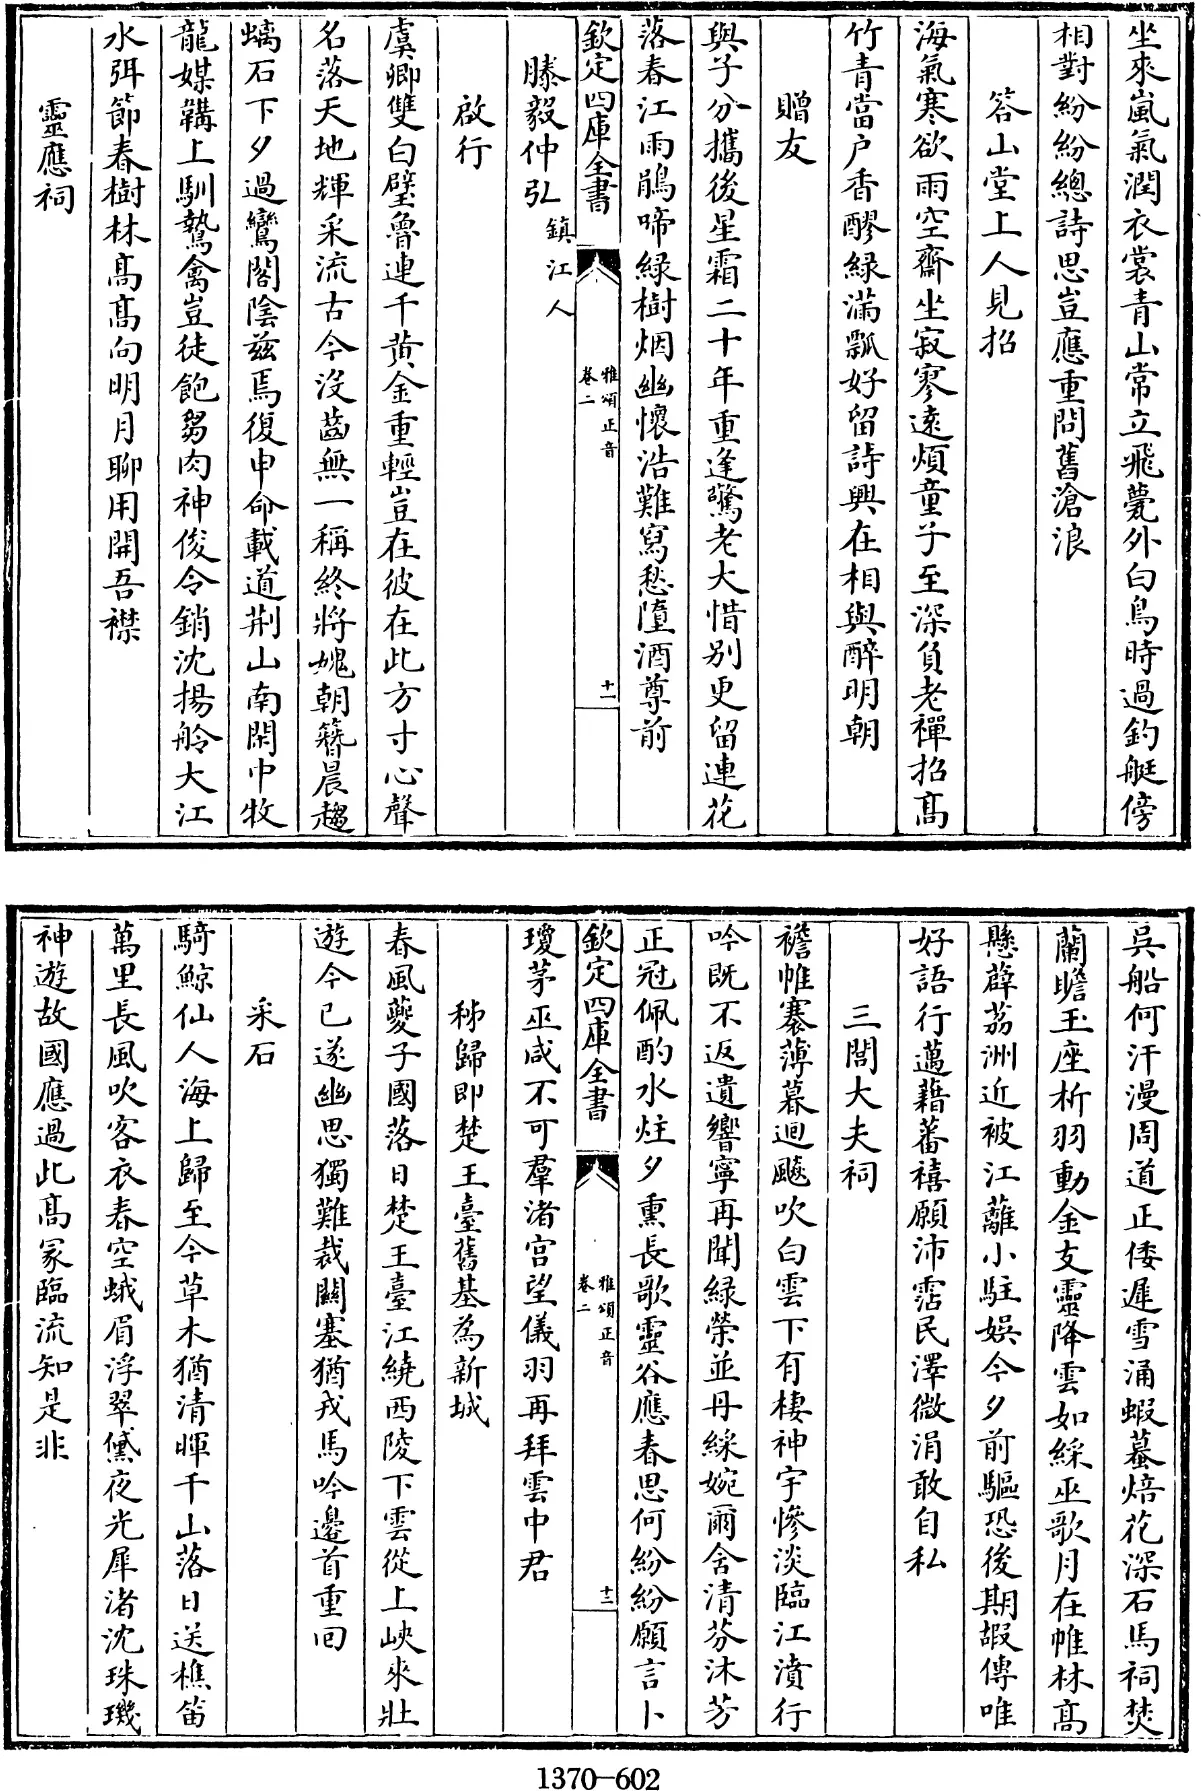 坐來嵐氣潤衣裳青山常立飛甍外白鳥時過釣艇傍
相對紛紛總詩思豈應重問舊滄浪
答山堂上人見招
海氣寒欲雨空齋坐寂寥遠煩童子至深負老禪招髙
竹青當户香醪緑滿瓢好留詩興在相與醉明朝
贈友
與子分攜後星霜二十年重逢驚老大惜别更留連花
落春江雨鵑啼緑樹烟幽懷浩難寫愁墮酒尊前
欽定四庫全書
雅頌正音
卷二
十一
滕毅仲弘
鎮江人
啟行
虞卿雙白璧魯連千黄金重輕豈在彼在此方寸心聲
名落天地輝采流古今沒齒無一稱終將媿朝簪晨趨
螭石下夕過鸞閣陰兹焉復申命載道荆山南閑中牧
龍媒韝上馴鷙禽豈徒飽芻肉神俊令銷沈揚舲大江
水弭節春樹林髙髙向明月聊用開吾襟
靈應祠
吳船何汗漫周道正倭遲雪涌蝦蟇焙花深石馬祠焚
蘭瞻玉座析羽動金支靈降雲如綵巫歌月在帷林髙
懸薜荔洲近被江蘺小駐娱今夕前驅恐後期嘏傳唯
好語行邁藉蕃禧願沛霑民澤微涓敢自私
三閭大夫祠
襜帷褰薄暮迴飈吹白雲下有棲神宇慘淡臨江濆行
吟既不返遺響寧再聞緑榮並丹綵婉爾含清芬沐芳
正冠佩酌水炷夕熏長歌靈谷應春思何紛紛願言卜
欽定四庫全書
雅頌正音
卷二
十二
瓊茅巫咸不可羣渚宫望儀羽再拜雲中君
秭歸即楚王臺舊基為新城
春風夔子國落日楚王臺江繞西陵下雲從上峽來壯
遊今已遂幽思獨難裁闗塞猶戎馬吟邊首重囘
采石
騎鯨仙人海上歸至今草木猶清暉千山落日送樵笛
萬里長風吹客衣春空蛾眉浮翠黛夜光犀渚沈珠璣
神遊故國應過此髙冢臨流知是非
1370—602